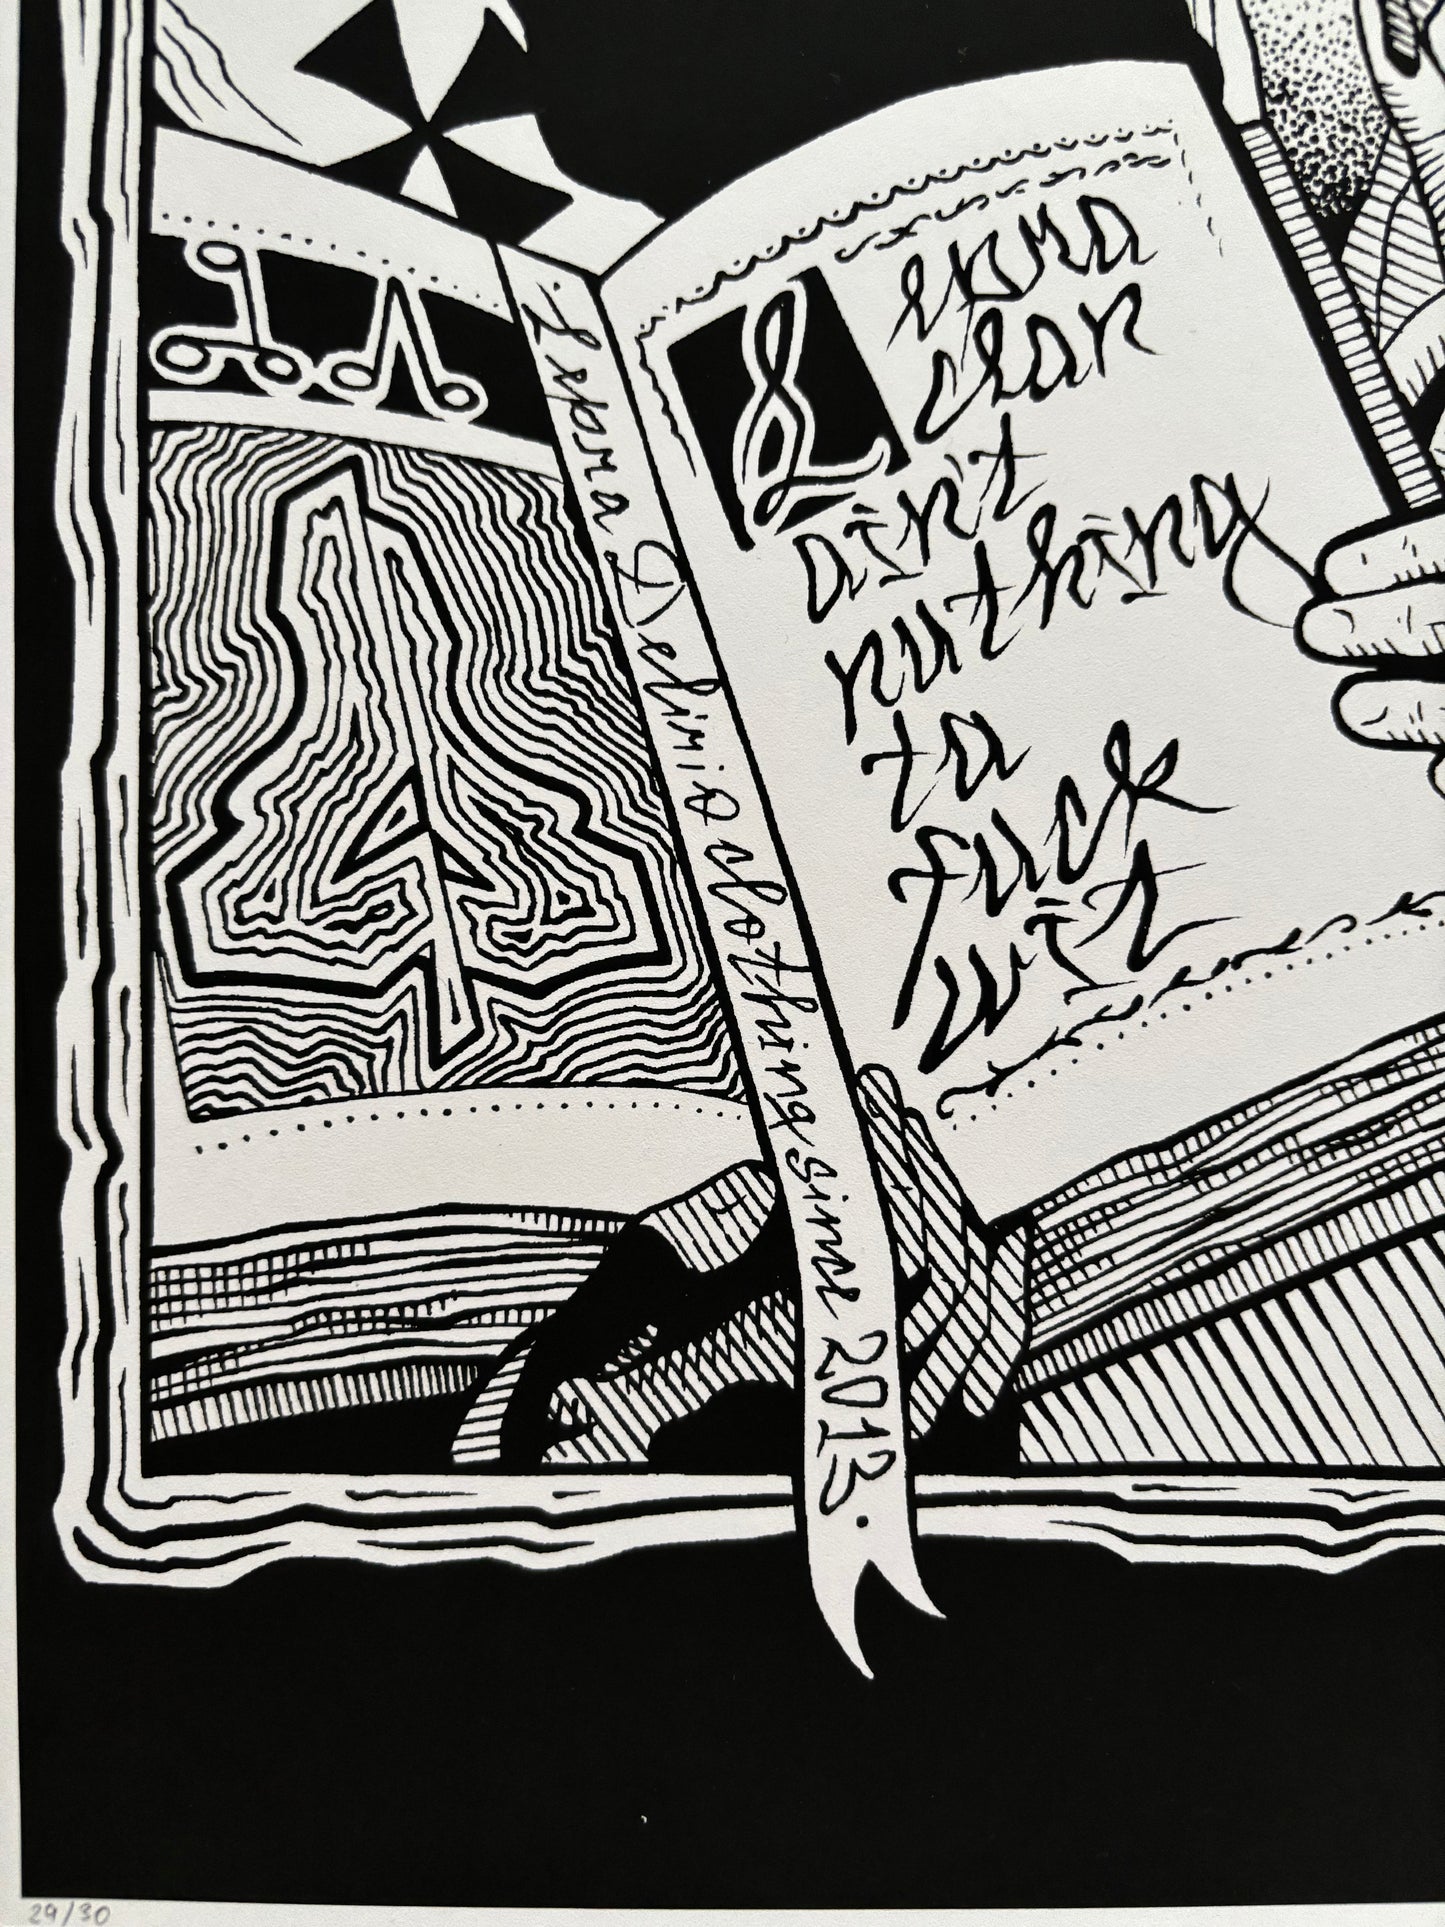 Lepra
clan
ain't
nuthing
ta
fuck
wit
Lepra Delimio clothing since 2013.
29/30